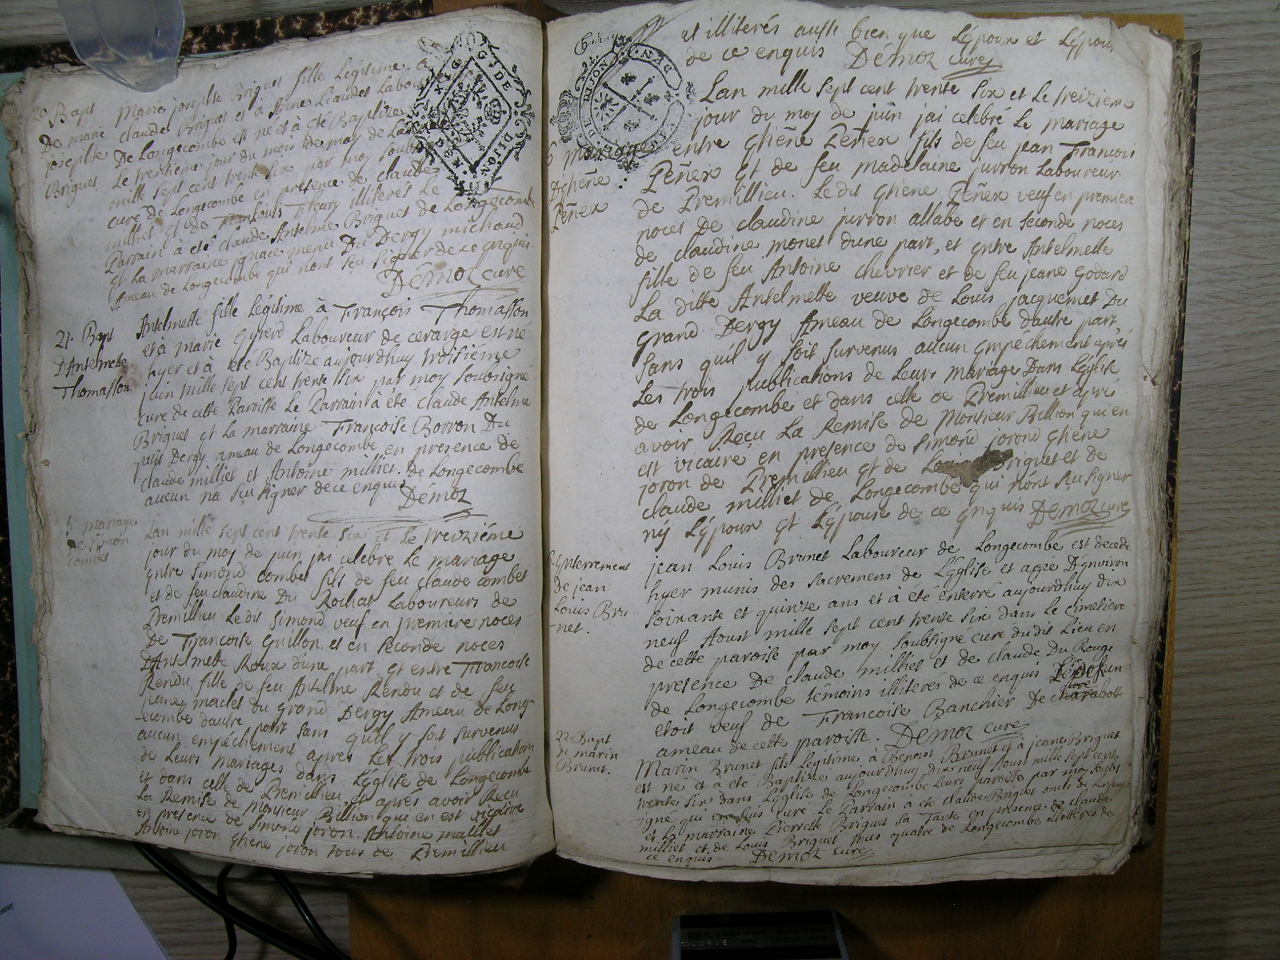 20 Bapt
De marie
josephte
Briguet
Marie josephte Briguet fille Legitime à
claude Briguet et à Anne Liaudet Labour
De Longecombe est né et à été Baptizée
Le trentieme jour du mois de may de Lan
mille sept cent trente six par moy soub
curé de Longecombe en presence de claude
milliet et de Louis Fleury illiterés Le
Parrain à été claude Anthelme Briguet de Longecombe
et La marraine ignace menu Du Dergy michaud
Ameau de Longecombe qui nont seu signer de ce enquis
Démoz curé
21. Bapt
D'Antelmette
Thomasson
Antelmette fille Legitime à François Thomasson
et à marie Gyrerd Laboureur de cerarge est né
hyer et à été Baptizé aujourdhuy troisiéme
juin mille sept cent trente six par moy soubsigné
curé de cette Paroisse Le Parrain à été claude Antelme
Briguet et La marraine Françoise Borron Du
petit Dergy ameau de Longecombe en presence de
claude milliet et Antoine milliet. de Longecombe
aucun na sçu signer de ce enquis
Démoz
mariage
de Simon
combet
Lan mille sept cent trente six et Le treiziéme
jour du moy de juin jai celebré Le mariage
entre Simond combet fils de feu claude combet
et de feu claudine Du Rochat Laboureurs de
Premillieu Le dit Simond veuf en premiere noces
De Francoise Guillon et en seconde noces
D'Antelmette Roux d'une part et entre Francoise
Rendu fille de feu Antelme Rendu et de feu
jeane maclet du grand Dergy Ameau de Long-
-ecombe dautre part sans quil y soit survenus
aucun empéchement apres Les trois publication
de Leurs mariages dans Léglise de Longecombe
et dans celle de Premillieu et après avoir Reçu
La Remise de monsieur Billion qui en est vicaire
en presence de Simond joron, Antoine milliet
Antoine joron Ghiene joron tous de Premillieu
et illiterés aussi bien que Lépoux et Lépouse
de ce enquis Démoz curé
mariage
De Ghēne
Peñex
Lan mille sept cent trente six et Le treizieme
jour du moy de juin jai celebré Le mariage
entre Ghēne Peñex fils de feu jean François
Peñex et de feu madelaine jurron Laboureur
de Premillieu. Le dit Ghene Peñex veuf en premiere
noces de claudine jurron allabe et en seconde noces
de claudine monet dune part, et entre Antelmette
fille de feu Antoine chevrier et de feu jeane Godard
La ditte Antelmette veuve de Louis jacquemet Du
grand Dergy Ameau de Longecombe dautre part,
sans quil y soit survenus aucun empechement après
Les trois publications de Leurs mariage Dans Léglise
de Longecombe et dans celle de Premillieu et après
avoir Reçu La Remise de Monsieur Billion qui en
est vicaire en presence de Simond jorond Ghēne
joron de Premillieu et de Louis Briguet et de
claude milliet de Longecombe qui nont sçu signer
ny Lépoux et Lépouse de ce enquis Démoz curé
Enterrement
De jean
Louis Bru
net.
jean Louis Brunet Laboureur de Longecombe est decedé
hyer munis des sacremens de Léglise et agée D'environ
soixante et quinze ans et à été enterré aujourdhuy dix
neuf Aoust mille sept cent trente six dans Le cimetiere
de cette paroisse par moy soubsigné curé dudit Lieu en
presence de claude milliet et de claude Du Rouge
de Longecombe temoins illiterés de ce enquis Le Defun
étoit veuf de Francoise Banchier De charabott
ameau de cette paroisse. Démoz curé
22 Bapt
De marin
Brunet.
Marin Brunet fils Legitime, à Benoist Brunet et à jeane Briguet
est né et à été Baptizée aujourdhuy dix neuf Aous mille sept cent
trente six dans Léglise de Longecombe Leurs paroisse par moy soubs
igné qui en suis curé Le Parrain à été claude Briguet oncle de
et La marraine Pierrette Briguet sa Tante en presence de claude
milliet et de Louis Briguet tous quatre de Longecombe illiterés de
ce enquis Démoz curé